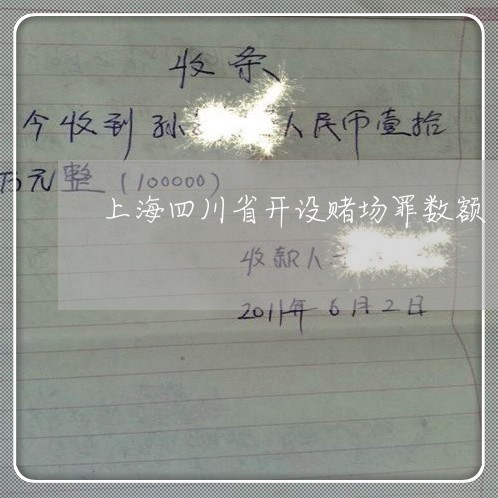 收条
今收到孙 人民币壹拾
万元整（100000）
上海四川省开设赌场罪数额
收款人
2011年6月2日